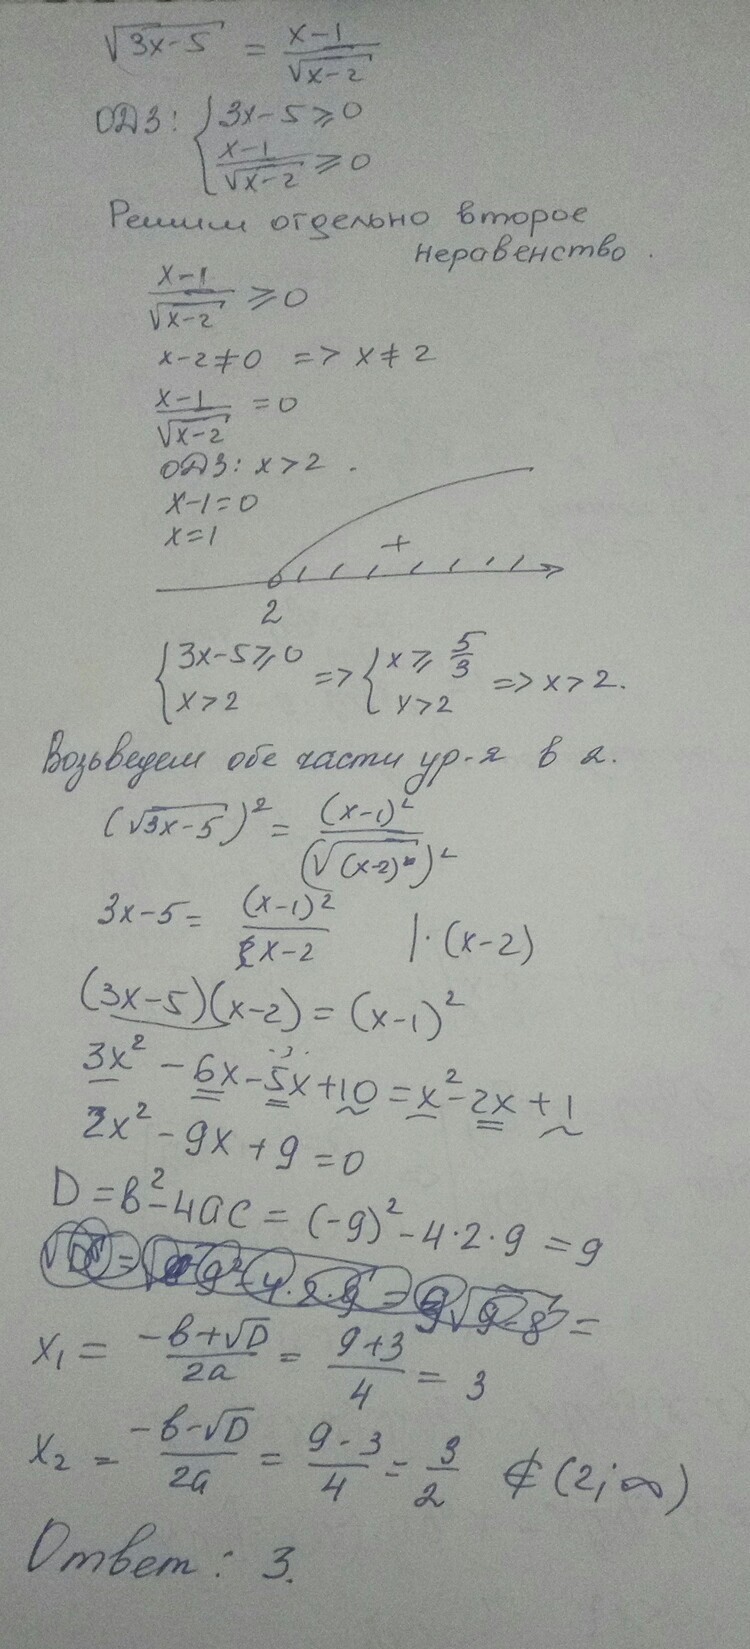 √(3x-5) = (x-1)/√(x-2)
ОДЗ: { 3x-5 ⩾ 0
(x-1)/√(x-2) ⩾ 0
Решим отдельно второе
неравенство.
(x-1)/√(x-2) ⩾ 0
x-2≠0 => x≠2
(x-1)/√(x-2) = 0
ОДЗ: x>2.
x-1=0
x=1
+
2
{ 3x-5⩾0 => { x⩾ 5/3 => x>2.
x>2 x>2
Возьведем обе части ур-я в 2.
(√(3x-5))² = (x-1)²/(√(x-2))²
3x-5 = (x-1)²/(x-2) |·(x-2)
(3x-5)(x-2) = (x-1)²
3x² - 6x - 5x + 10 = x² - 2x + 1
2x² - 9x + 9 = 0
D = b² - 4ac = (-9)² - 4·2·9 = 9
x₁ = (-b+√D)/2a = (9+3)/4 = 3
x₂ = (-b-√D)/2a = (9-3)/4 = 3/2 ∉ (2; ∞)
Ответ: 3.